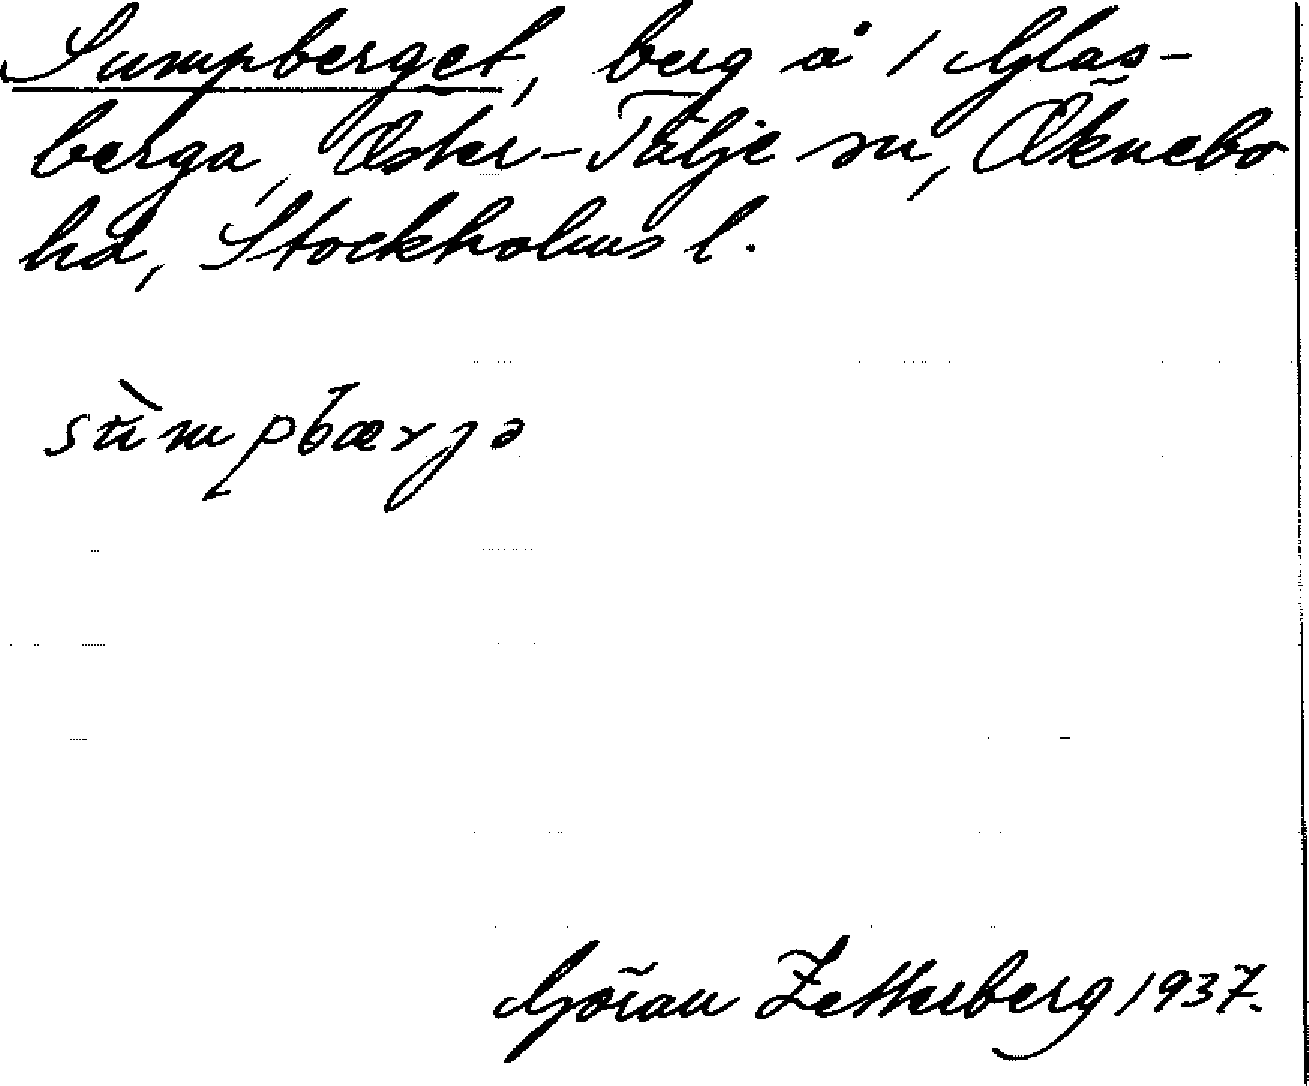 Sumpberget, berg å 1 Glas-
berga, Öster-Tälje sn, Öknebo
hd, Stockholms l.
sùmpbærjə
Göran Zetterberg 1937.